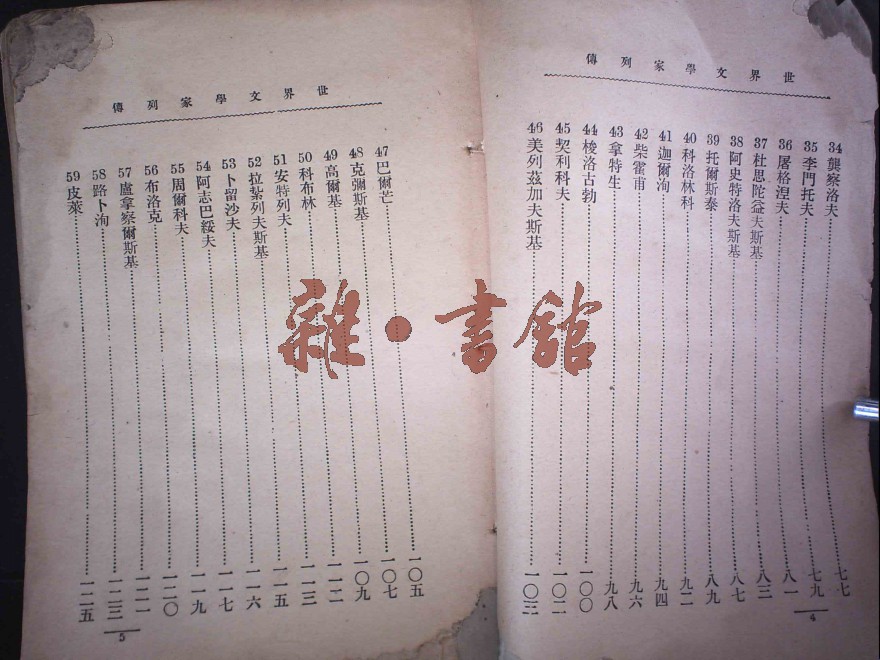 世界文學家列傳
34 龔察洛夫……七七
35 李門托夫……七九
36 屠格涅夫……八一
37 杜思陀益夫斯基……八三
38 阿史特洛夫斯基……八七
39 托爾斯泰……八九
40 科洛林科……九二
41 迦爾洵……九四
42 柴霍甫……九六
43 拿特生……九八
44 梭洛古勃……一〇〇
45 契利科夫……一〇二
46 美列茲加夫斯基……一〇三
4
世界文學家列傳
47 巴爾芒……一〇五
48 克彌斯基……一〇七
49 高爾基……一〇九
50 科布林……一一二
51 安特列夫……一一三
52 拉紮列夫斯基……一一五
53 卜留沙夫……一一六
54 阿志巴綏夫……一一七
55 周爾科夫……一一九
56 布洛克……一二〇
57 盧拿察爾斯基……一二一
58 路卜洵……一二三
59 皮萊……一二五
5
雜·書館